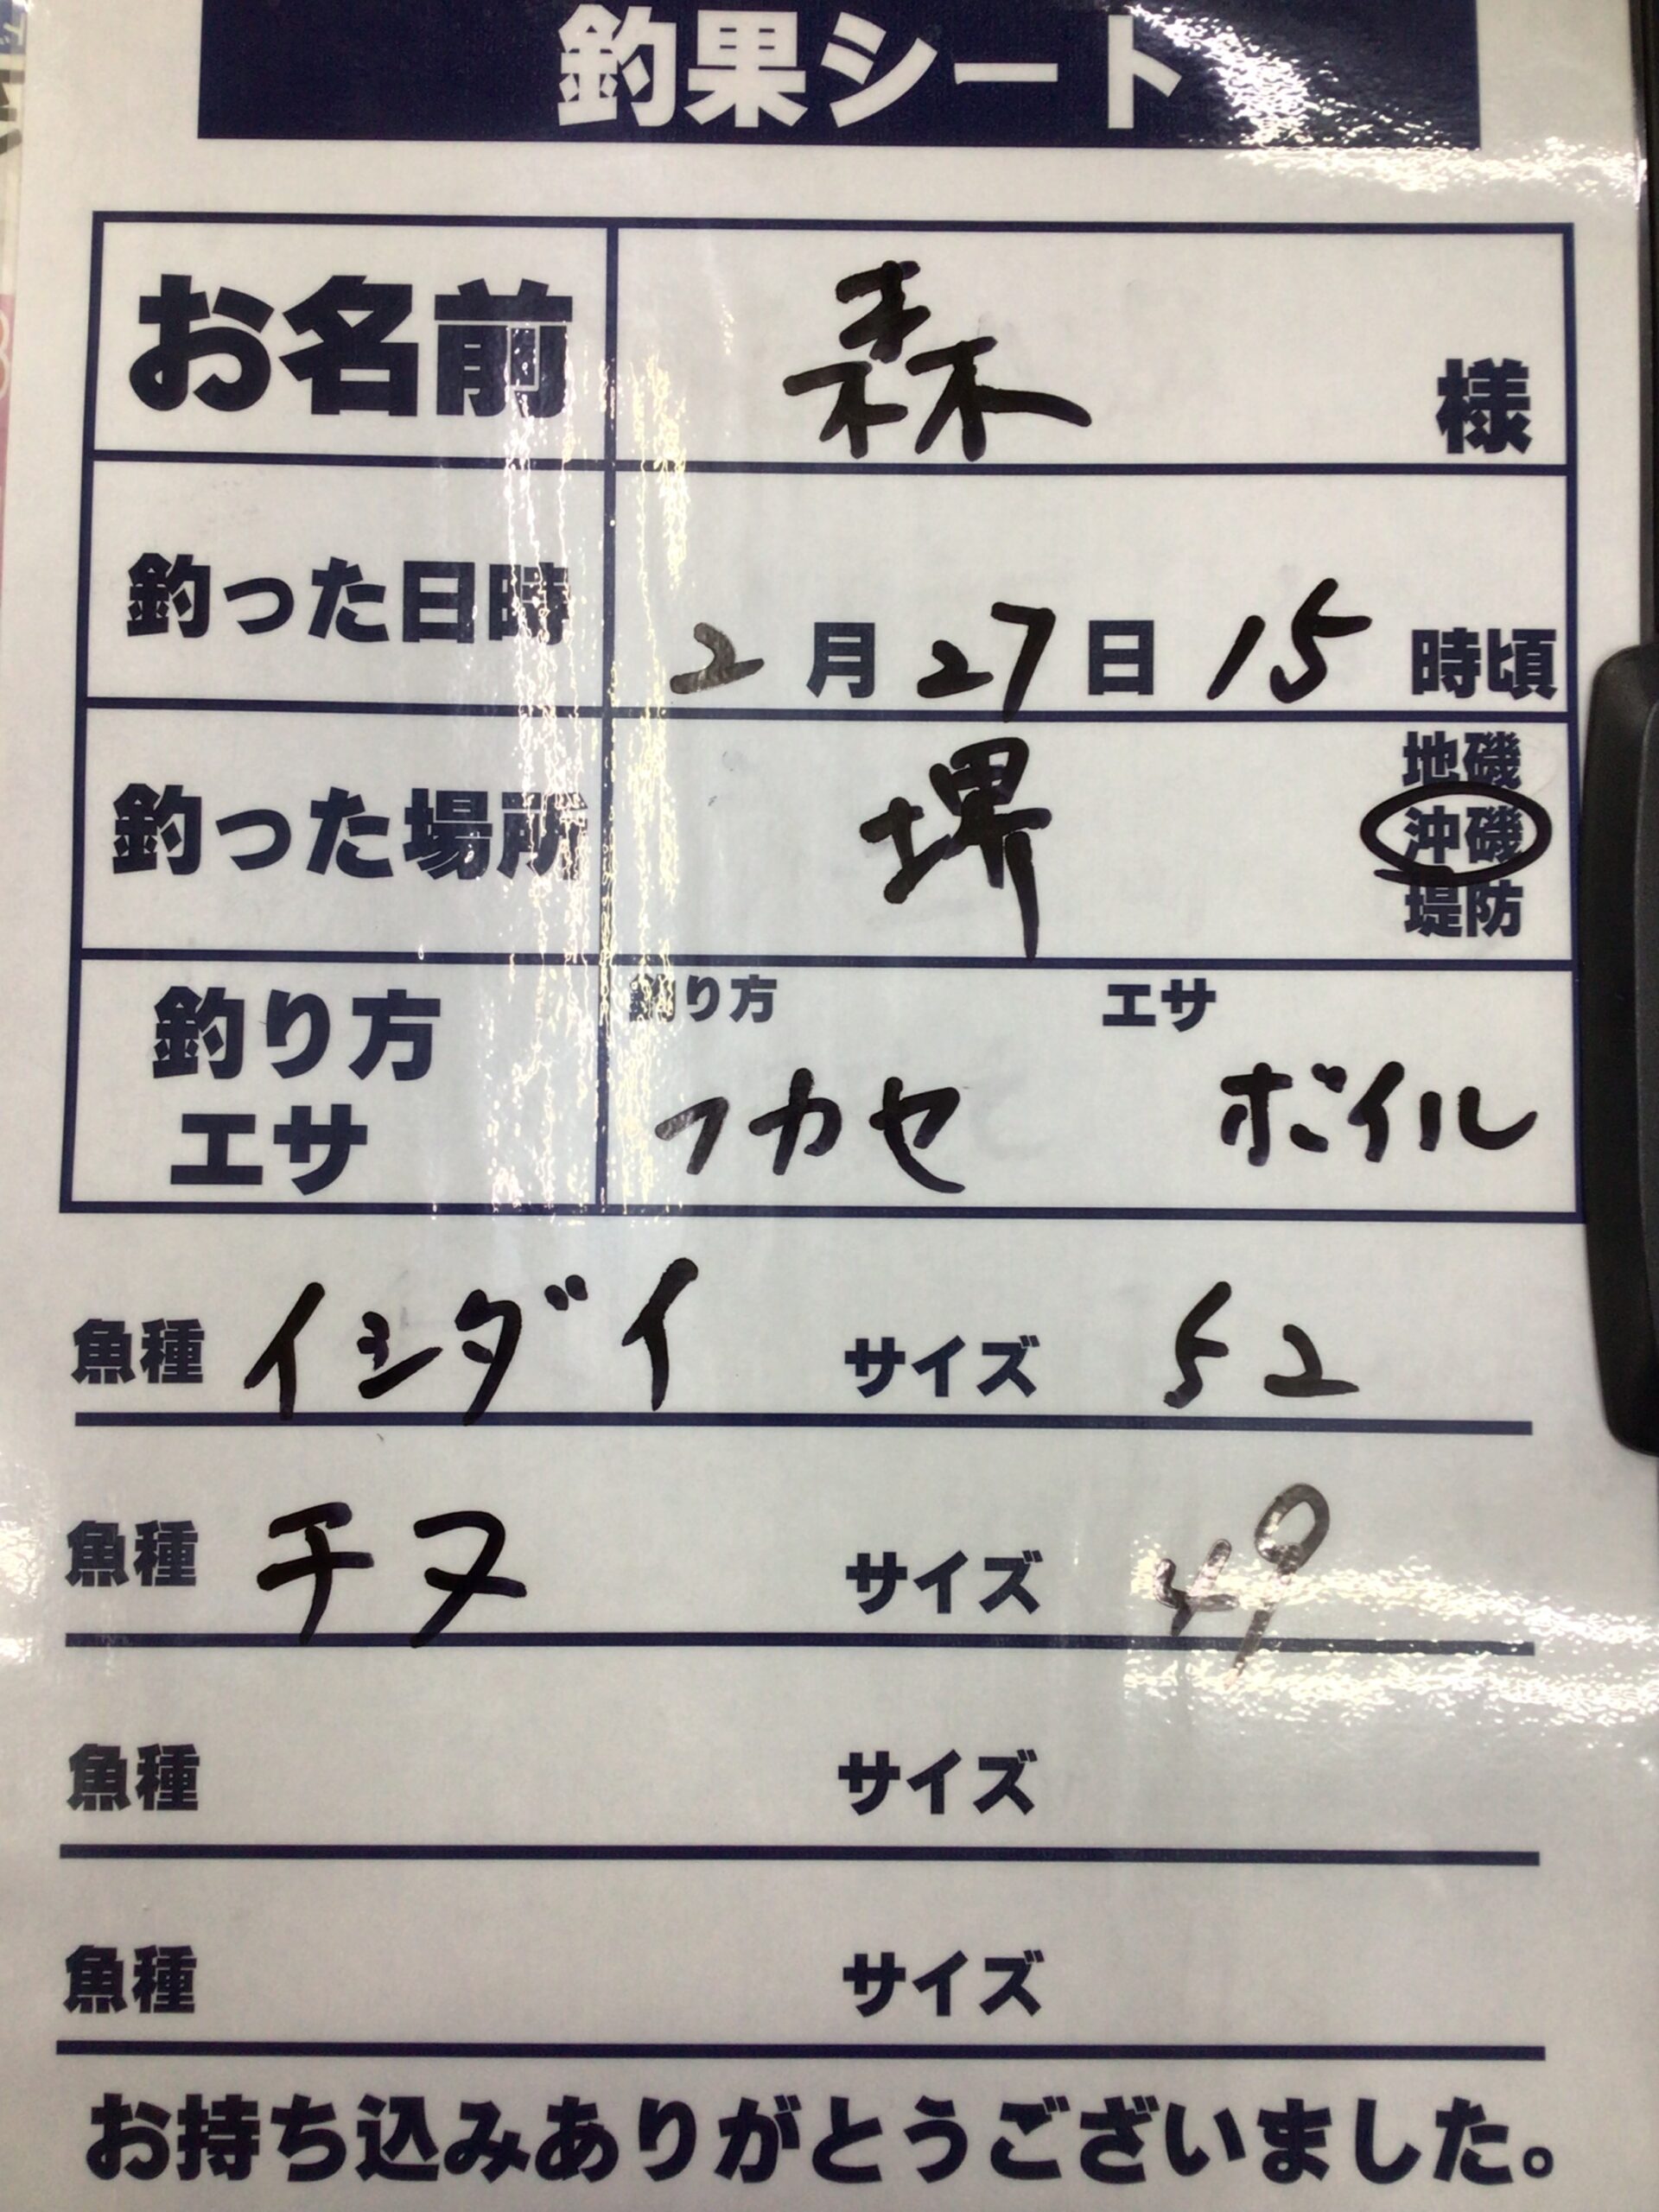 釣果シート
お名前 森 様
釣った日時 2月27日15時頃
釣った場所 堺 地磯
沖磯
堤防
釣り方 エサ
釣り方 エサ
フカセ ボイル
魚種 イシダイ サイズ 52
魚種 チヌ サイズ 49
魚種 サイズ
魚種 サイズ
お持ち込みありがとうございました。